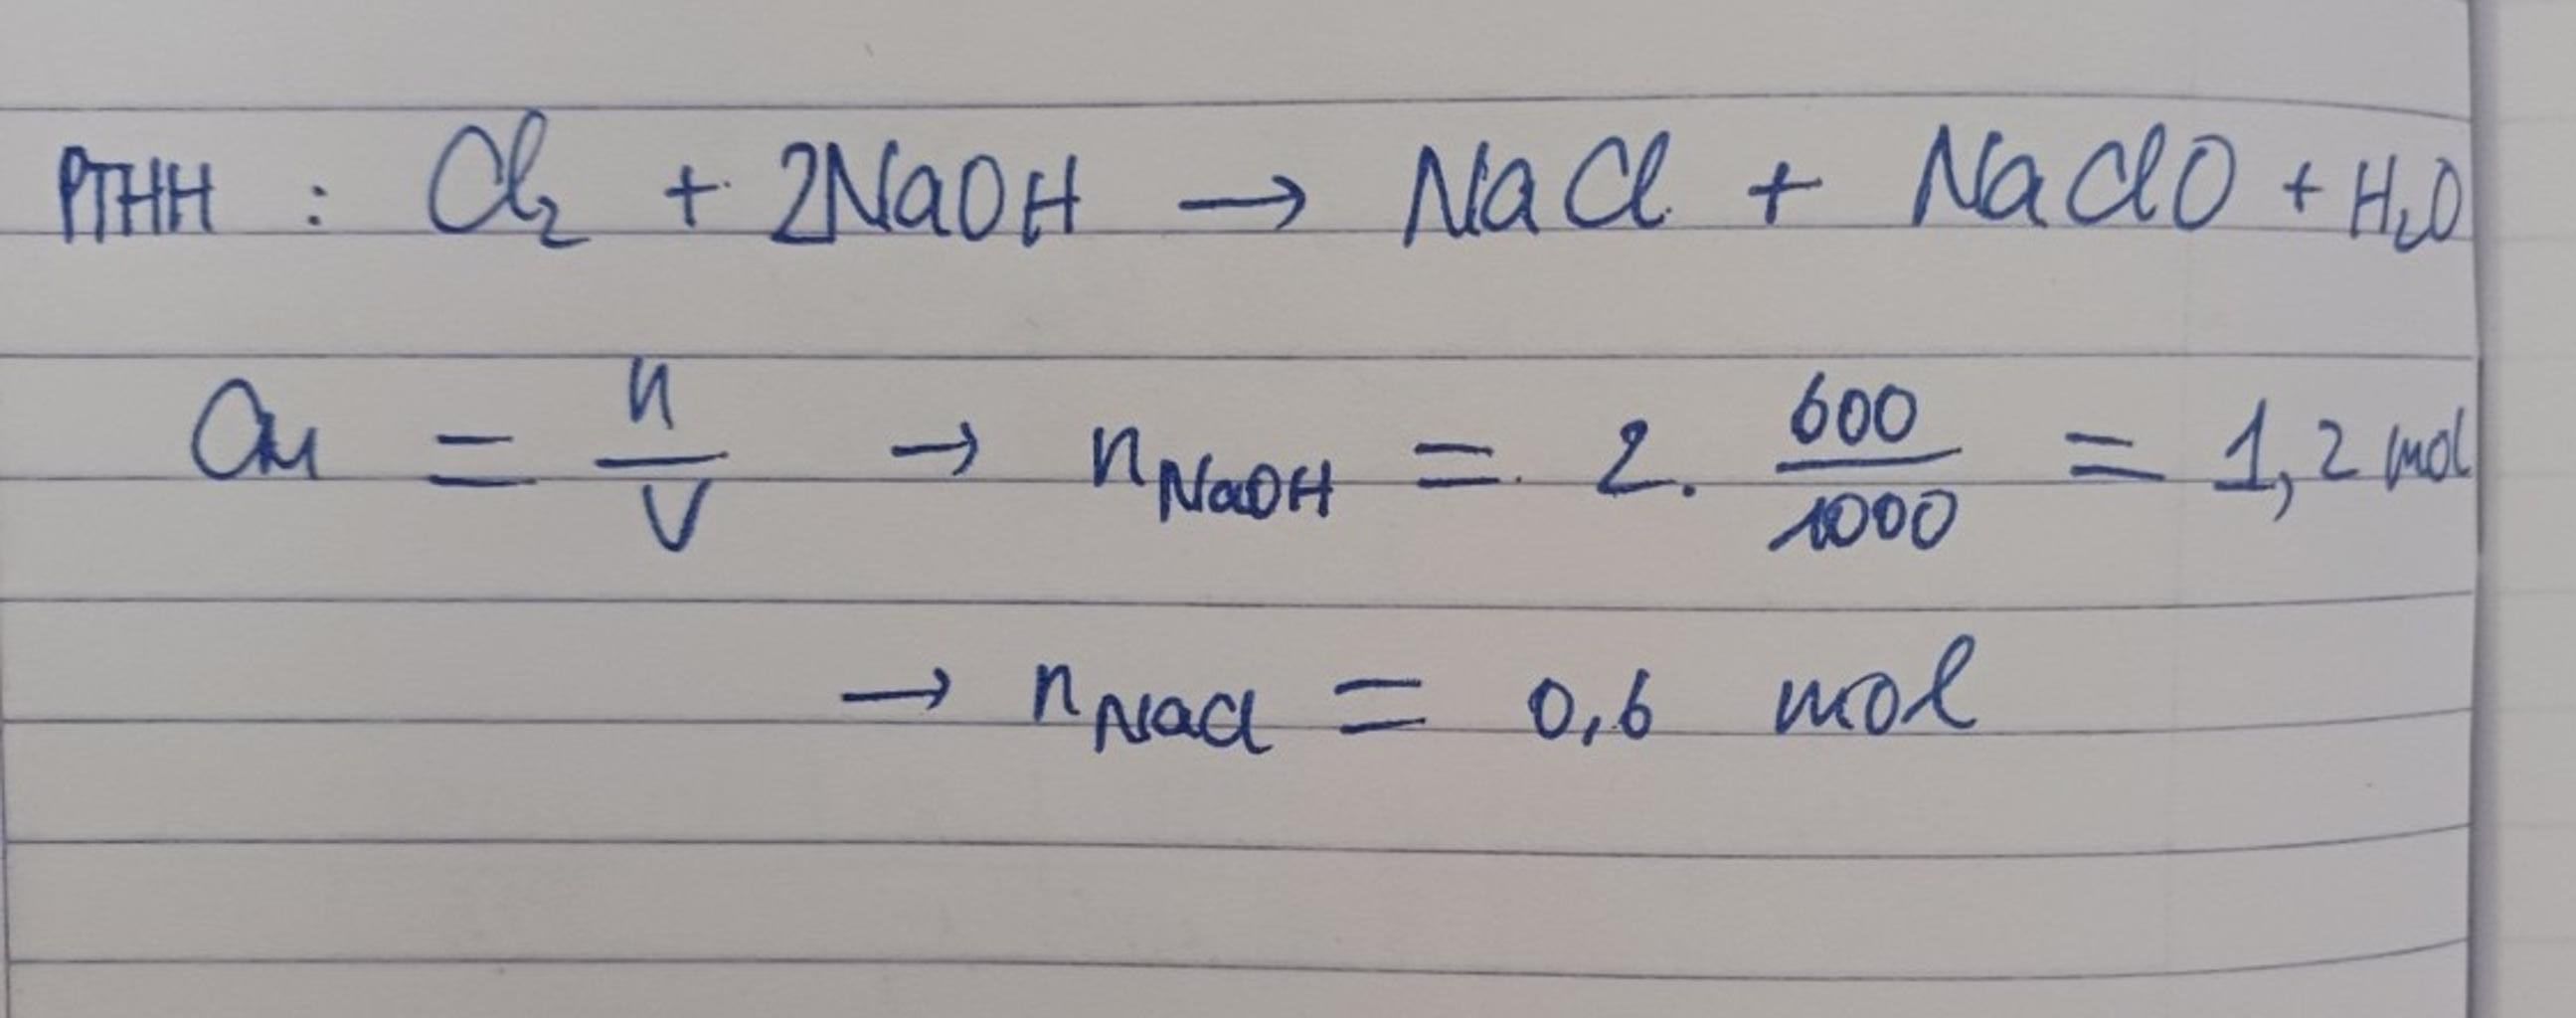 PTHH : Cl₂ + 2NaOH → NaCl + NaClO + H₂O
CM = n/V → nNaOH = 2. 600/1000 = 1,2 mol
→ nNaCl = 0,6 mol